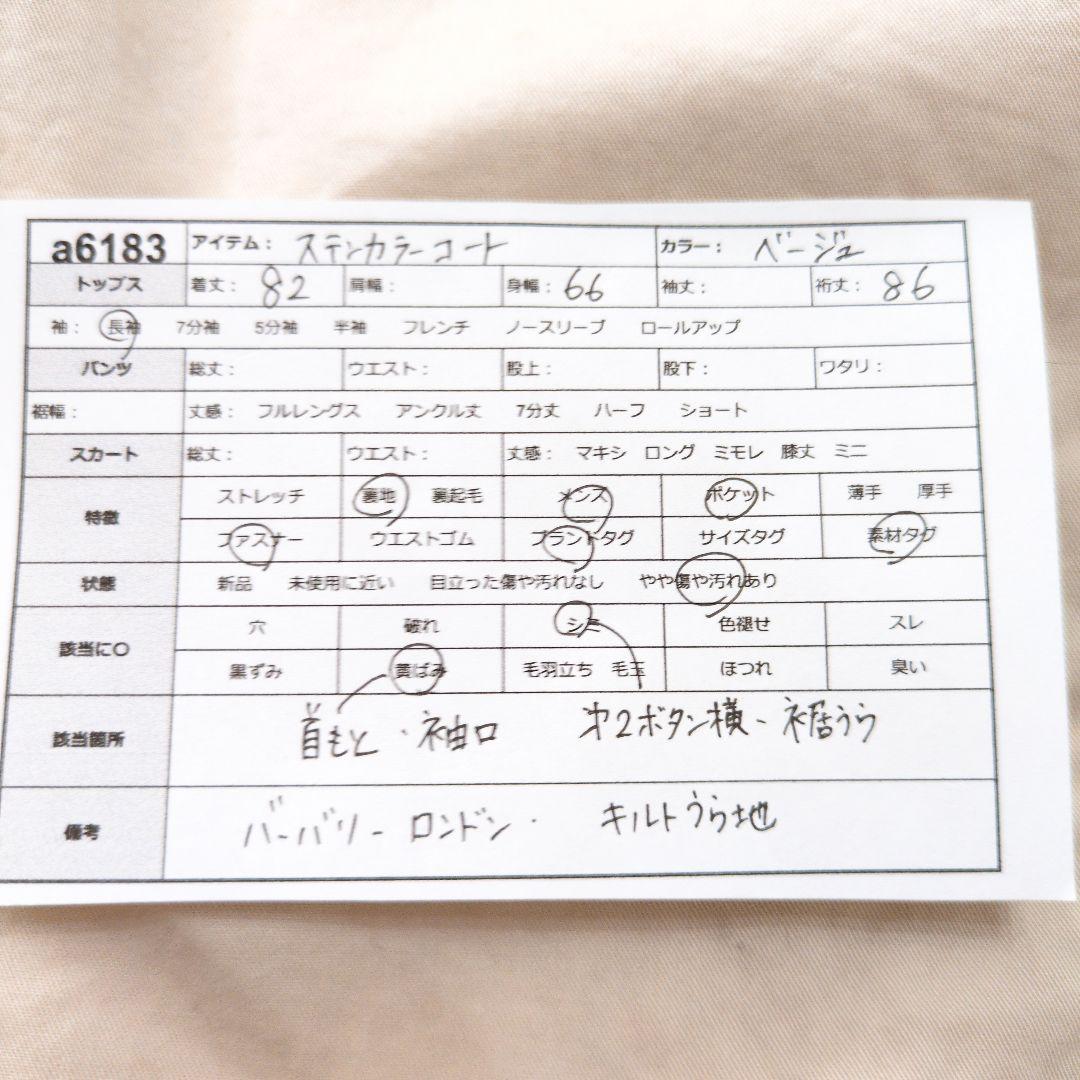 a6183 アイテム： ステンカラーコート カラー： ベージュ
トップス 着丈： 82 肩幅： 身幅： 66 袖丈： 裄丈： 86
袖： 長袖 7分袖 5分袖 半袖 フレンチ ノースリーブ ロールアップ
パンツ 総丈： ウエスト： 股上： 股下： ワタリ：
裾幅： 丈感： フルレングス アンクル丈 7分丈 ハーフ ショート
スカート 総丈： ウエスト： 丈感： マキシ ロング ミモレ 膝丈 ミニ
特徴 ストレッチ 裏地 裏起毛 メンズ ポケット 薄手 厚手
ファスナー ウエストゴム ブランドタグ サイズタグ 素材タグ
状態 新品 未使用に近い 目立った傷や汚れなし やや傷や汚れあり
該当に〇 穴 破れ シミ 色褪せ スレ
黒ずみ 黄ばみ 毛羽立ち 毛玉 ほつれ 臭い
該当箇所 首もと・袖口 第2ボタン横、裾うら
備考 バーバリーロンドン・ キルトうら地